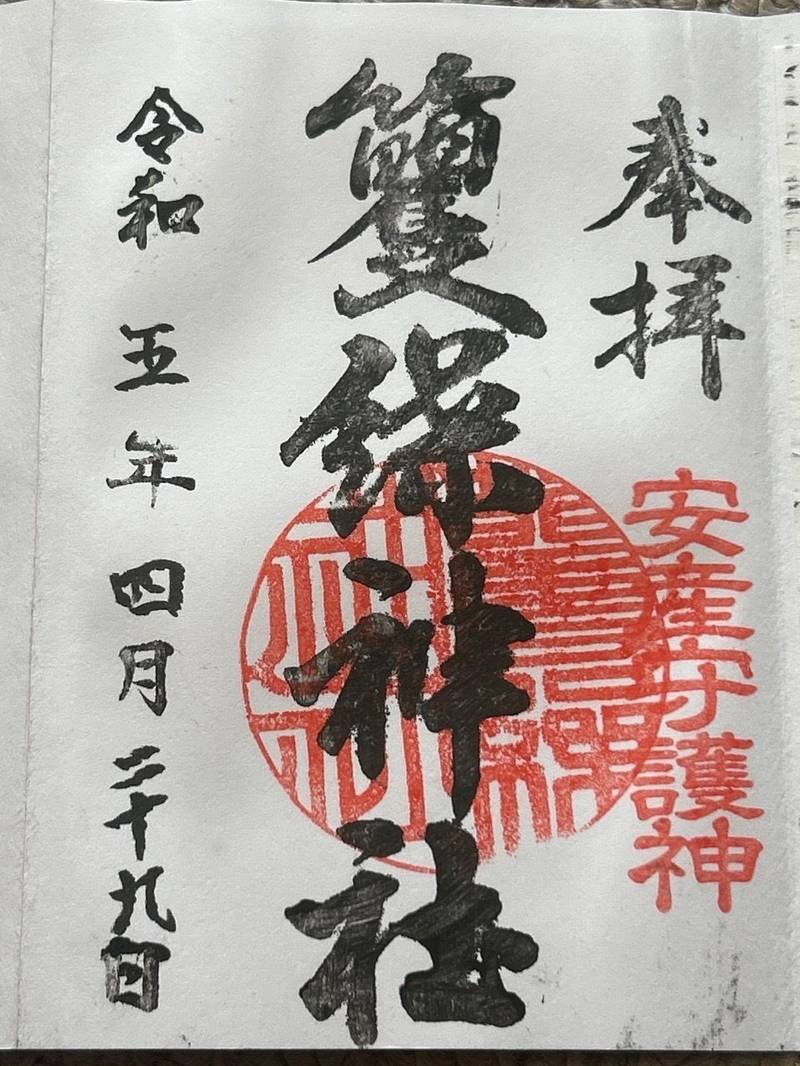 奉拝
安産守護神
籰繰神社
令和五年四月二十九日